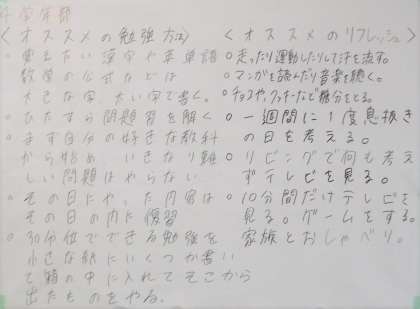 中学年部
〈オススメの勉強方法〉
○覚えたい漢字や英単語
数学の公式などは
大きな字、太い字で書く。
○ひたすら問題習を解く
○まず自分の好きな教科
から始め、いきなり難
しい問題はやらない
○その日にやった内容は
その日の内に復習
○30分位でできる勉強を
小さな紙にいくつか書い
て箱の中に入れてそこから
出たものをやる。
〈オススメのリフレッシュ〉
○走ったり運動したりして汗を流す。
○マンガを読んだり音楽を聴く。
○チョコや、クッキーなど糖分をとる。
○一週間に1度息抜き
の日を考える。
○リビングで何も考え
ずテレビを見る。
○10分間だけテレビを
見る。ゲームをする。
家族とおしゃべり。